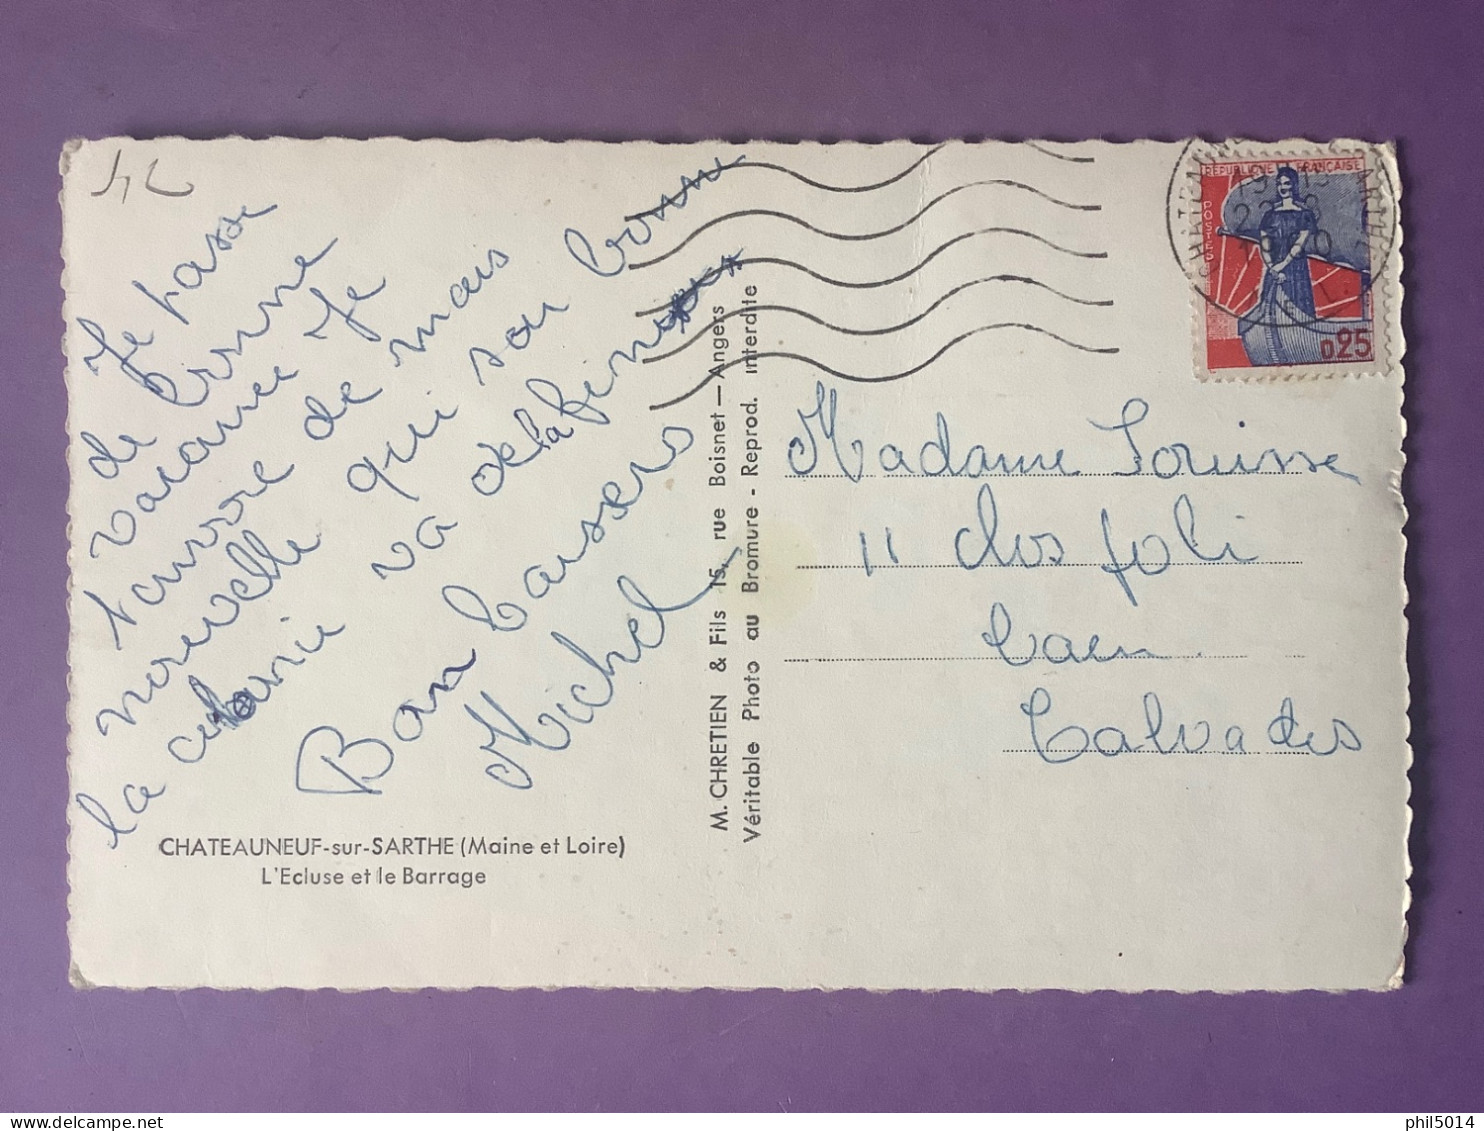 Je passe
de bonne
vacance Je
trouvre de mais
nouvelle qui son bonne
la colonie va de la
Bon baisers
Michel
CHATEAUNEUF-sur-SARTHE (Maine et Loire)
L'Ecluse et le Barrage
M. CHRETIEN & Fils 15, rue Boisnet — Angers
Véritable Photo au Bromure - Reprod. interdite
RÉPUBLIQUE FRANÇAISE
POSTES
0,25
Madame
11 clos joli
Caen
Calvados
phil5014